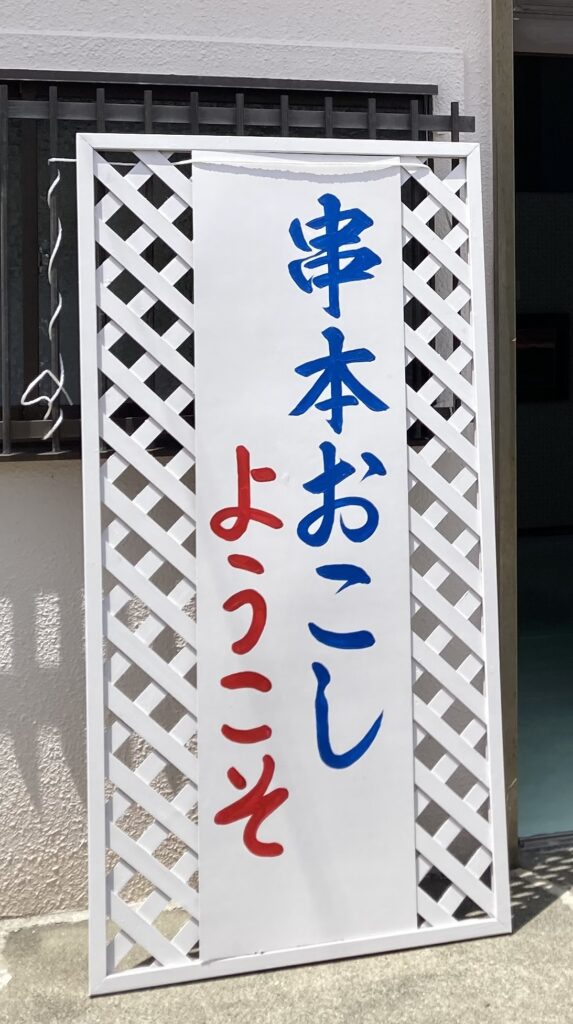 串本おこし
ようこそ